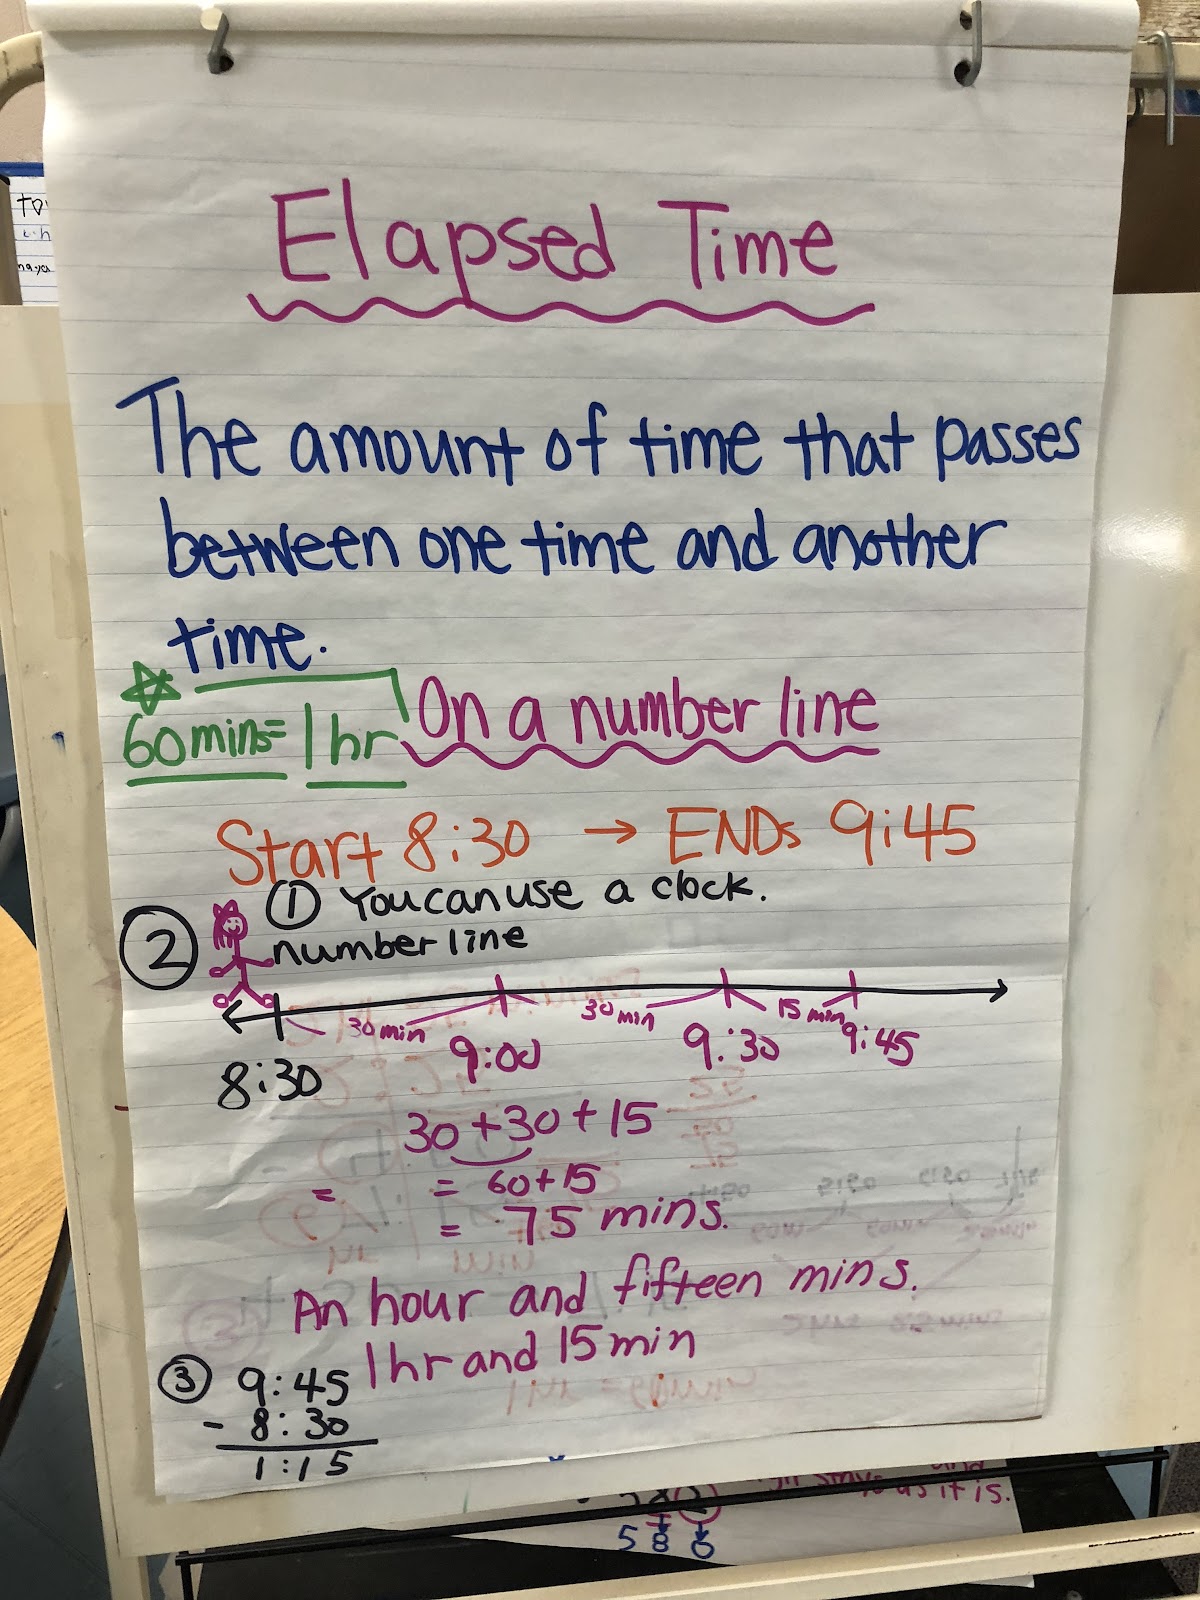 Elapsed Time
The amount of time that passes
between one time and another
time.
60mins= 1hr
On a number line
Start 8:30 → ENDs 9:45
① You can use a clock.
② number line
30 min 30 min 15 min
8:30 9:00 9:30 9:45
30 + 30 + 15
= = 60+15
= 75 mins.
An hour and fifteen mins.
1hr and 15 min
③ 9:45
- 8:30
1:15
as it is.
5 8 0